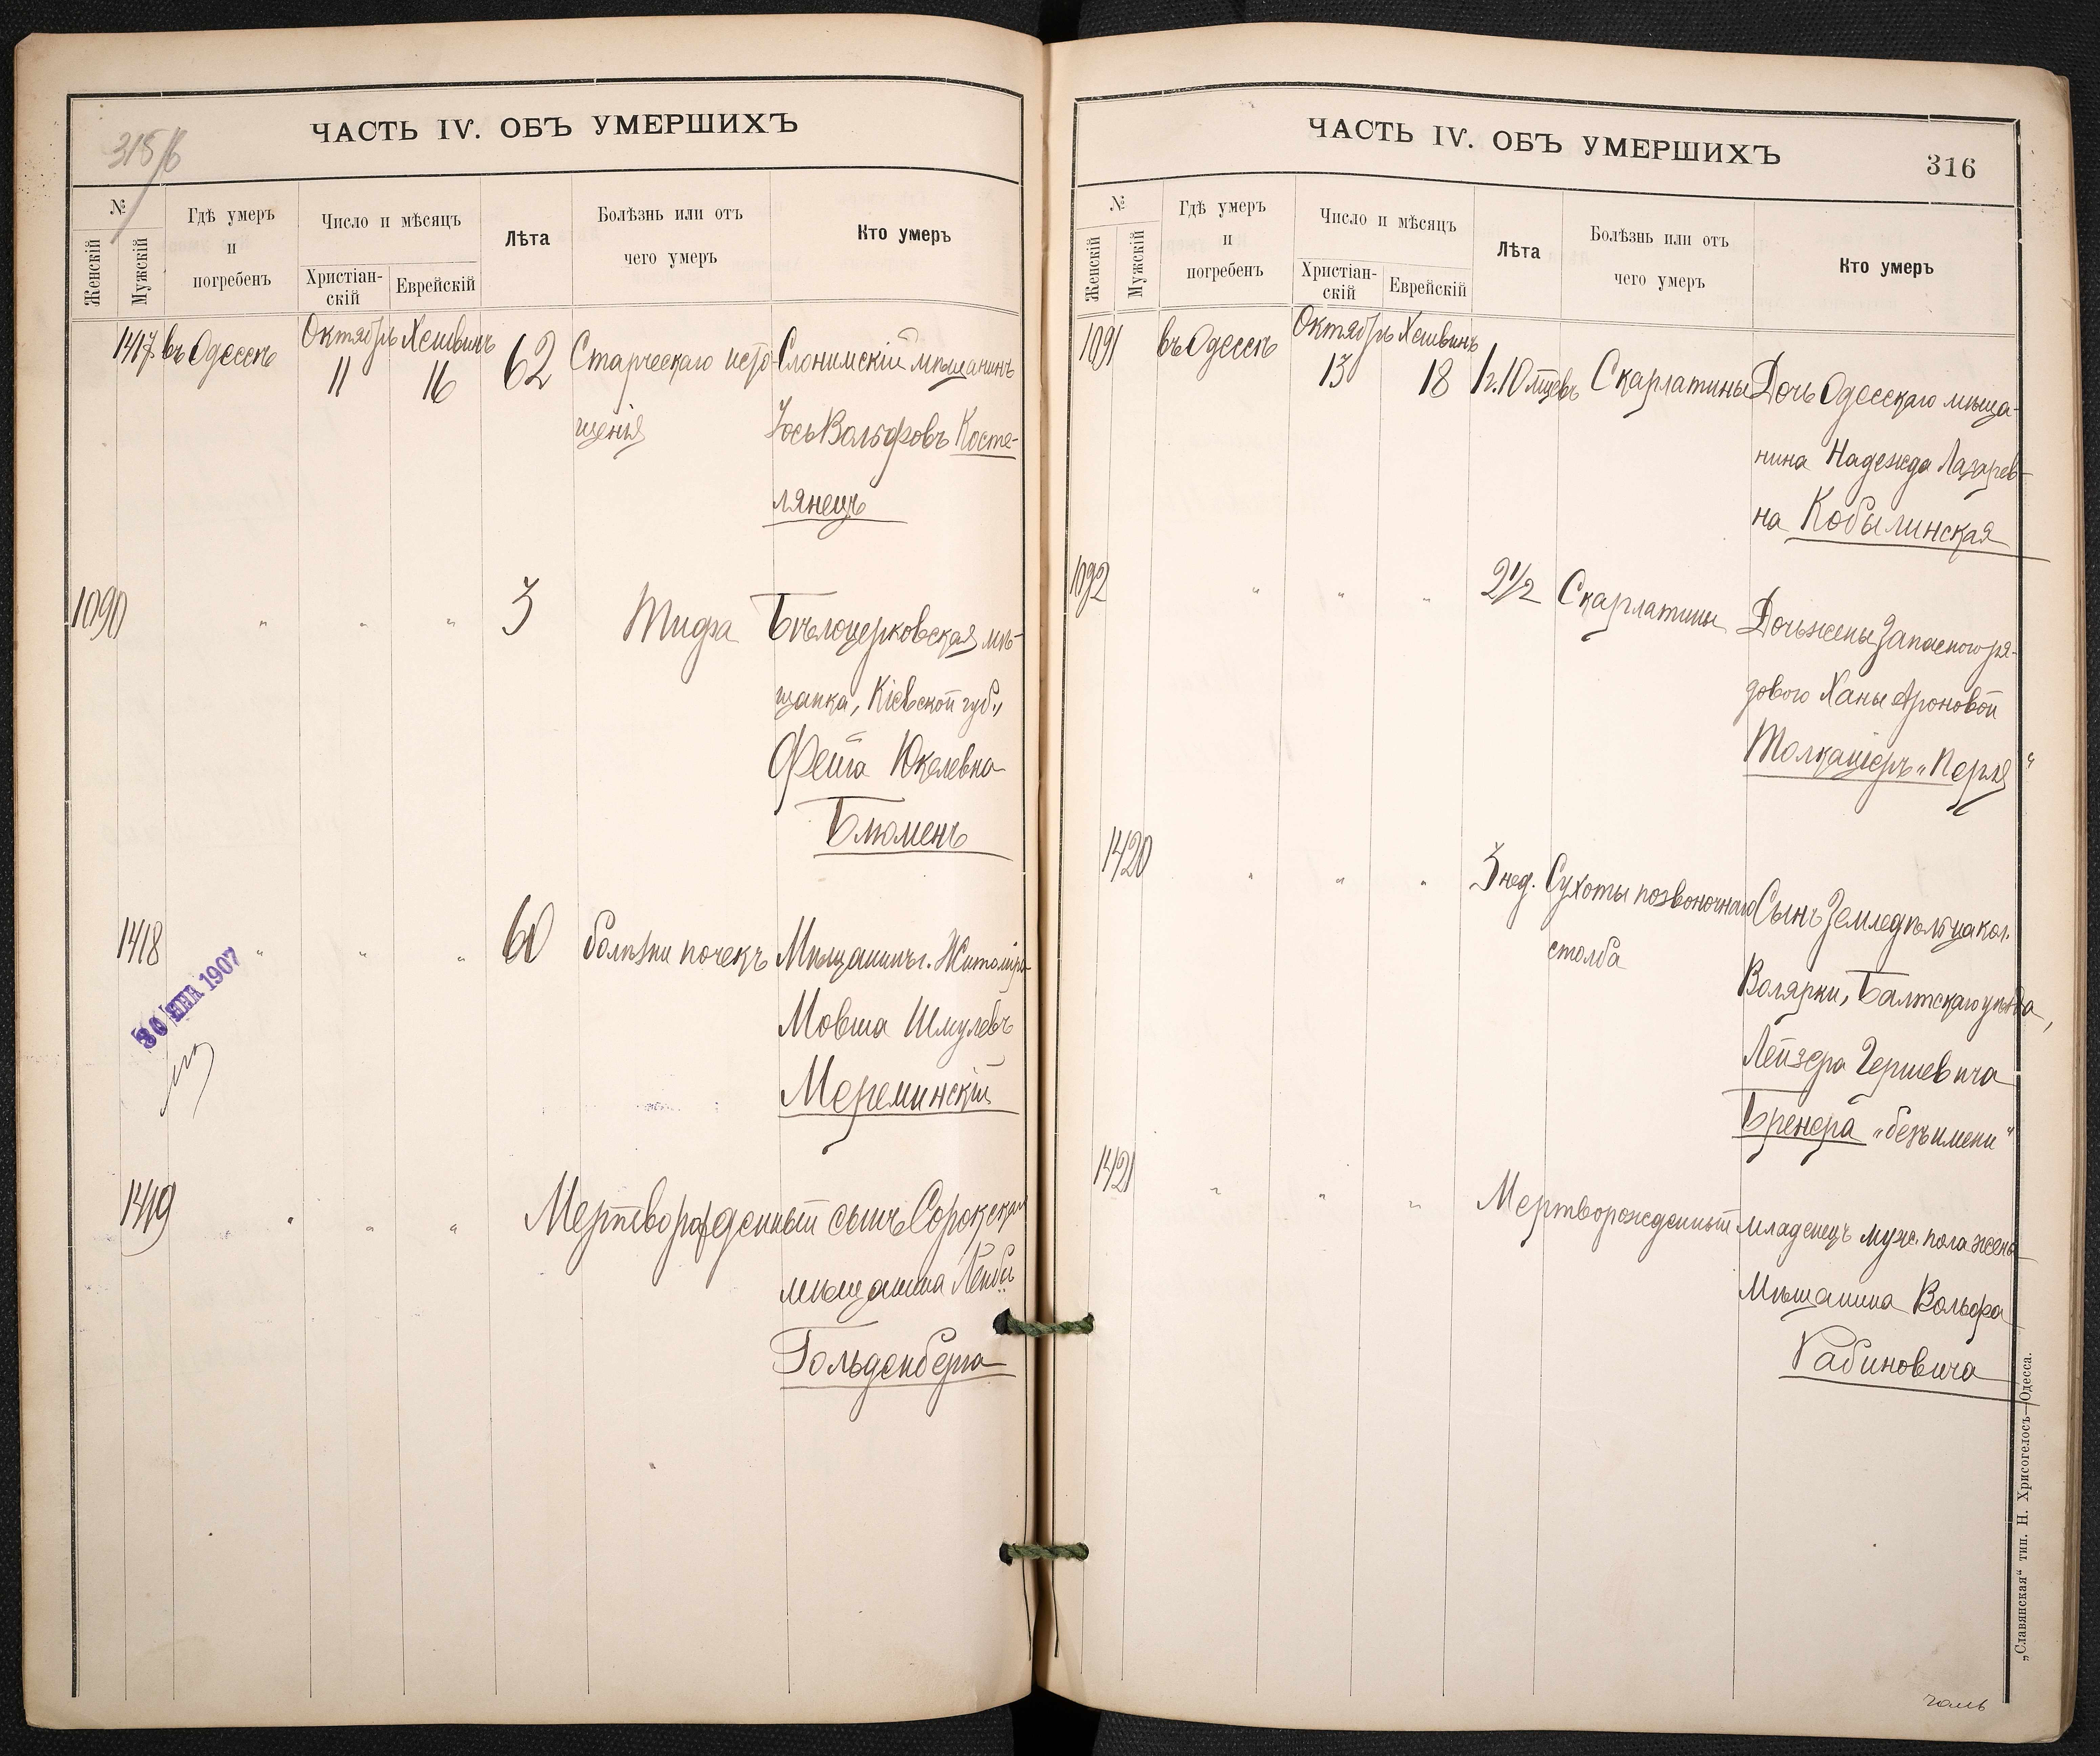 315/6
ЧАСТЬ IV. ОБЪ УМЕРШИХЪ
№
Женскій
Мужскій
Гдѣ умеръ
и
погребенъ
Число и мѣсяцъ
Христіан-
скій
Еврейскій
Лѣта
Болѣзнь или отъ
чего умеръ
Кто умеръ
1417 въ Одессѣ Октябрь Хешвинъ 62 Старческаго исто- Слонимскій мѣщанинъ
11 16
щенія Іось Вольфовъ Косте-
лянецъ
1090 " " " 3 Тифа Бѣлоцерковская мѣ-
щанка, Кіевской губ.,
Фейга Юкелевна
Блюменъ
1418 " " " 60 болѣзни почекъ Мѣщанинъ г. Житоміра
30 ЯНВ 1907
Мовша Шмулевъ
Мереминскій
1419 " " " Мертворожденный сынъ Сорокскаго
мѣщанина Лейбы
Гольденберга
ЧАСТЬ IV. ОБЪ УМЕРШИХЪ
316
№
Женскій
Мужскій
Гдѣ умеръ
и
погребенъ
Число и мѣсяцъ
Христіан-
скій
Еврейскій
Лѣта
Болѣзнь или отъ
чего умеръ
Кто умеръ
1091 въ Одессѣ Октябрь Хешвинъ
13 18 1 г. 10 мѣцевъ Скарлатины Дочь Одесскаго мѣща-
нина Надежда Лазарев-
на Кобылинская
1092 " " " 2 1/2 Скарлатины Дочь жены Запасного ря-
дового Ханы Ароновой
Толкацеръ „Перля“
1420 " " " 3 нед. Сухоты позвоночнаго Сынъ Земледѣльца кол.
столба
Волярки, Балтскаго уѣзда,
Лейзера Гершевича
Бренера „безъ имени“
1421 " " " Мертворожденный младенецъ муж. пола жены
Мѣщанина Вольфа
Рабиновича
„Славянская“ тип. Н. Хрисогелосъ—Одесса.